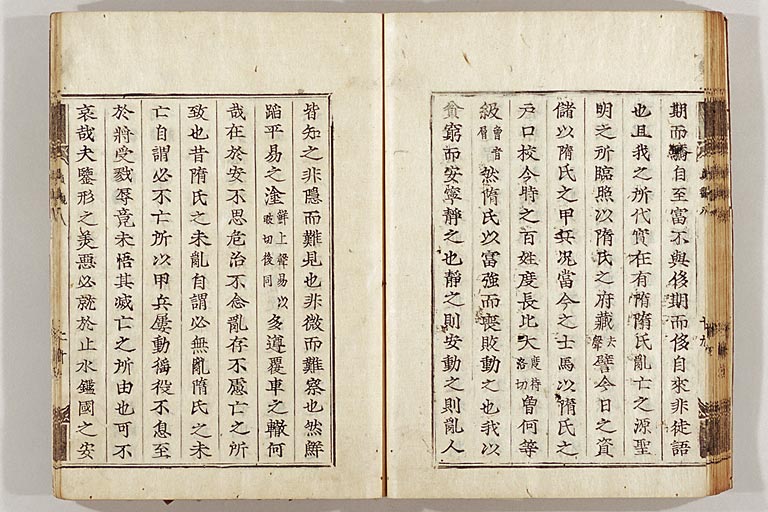 期而驕自至富不與侈期而侈自來非徒語
也且我之所代實在有隋隋氏亂亡之源聖
明之所臨照以隋氏之府藏去聲譬今日之資
儲以隋氏之甲兵況當今之士馬以隋氏之
戶口校今時之百姓度長比大度待洛切曾何等
級曾音層然隋氏以富強而喪敗動之也我以
貧窮而安寧靜之也靜之則安動之則亂人
皆知之非隱而難見也非微而難察也然鮮
蹈平易之塗鮮上聲易以豉切後同多遵覆車之轍何
哉在於安不思危治不念亂存不慮亡之所
致也昔隋氏之未亂自謂必無亂隋氏之未
亡自謂必不亡所以甲兵屢動徭役不息至
於將受戮辱竟未悟其滅亡之所由也可不
哀哉夫鑒形之美惡必就於止水鑑國之安